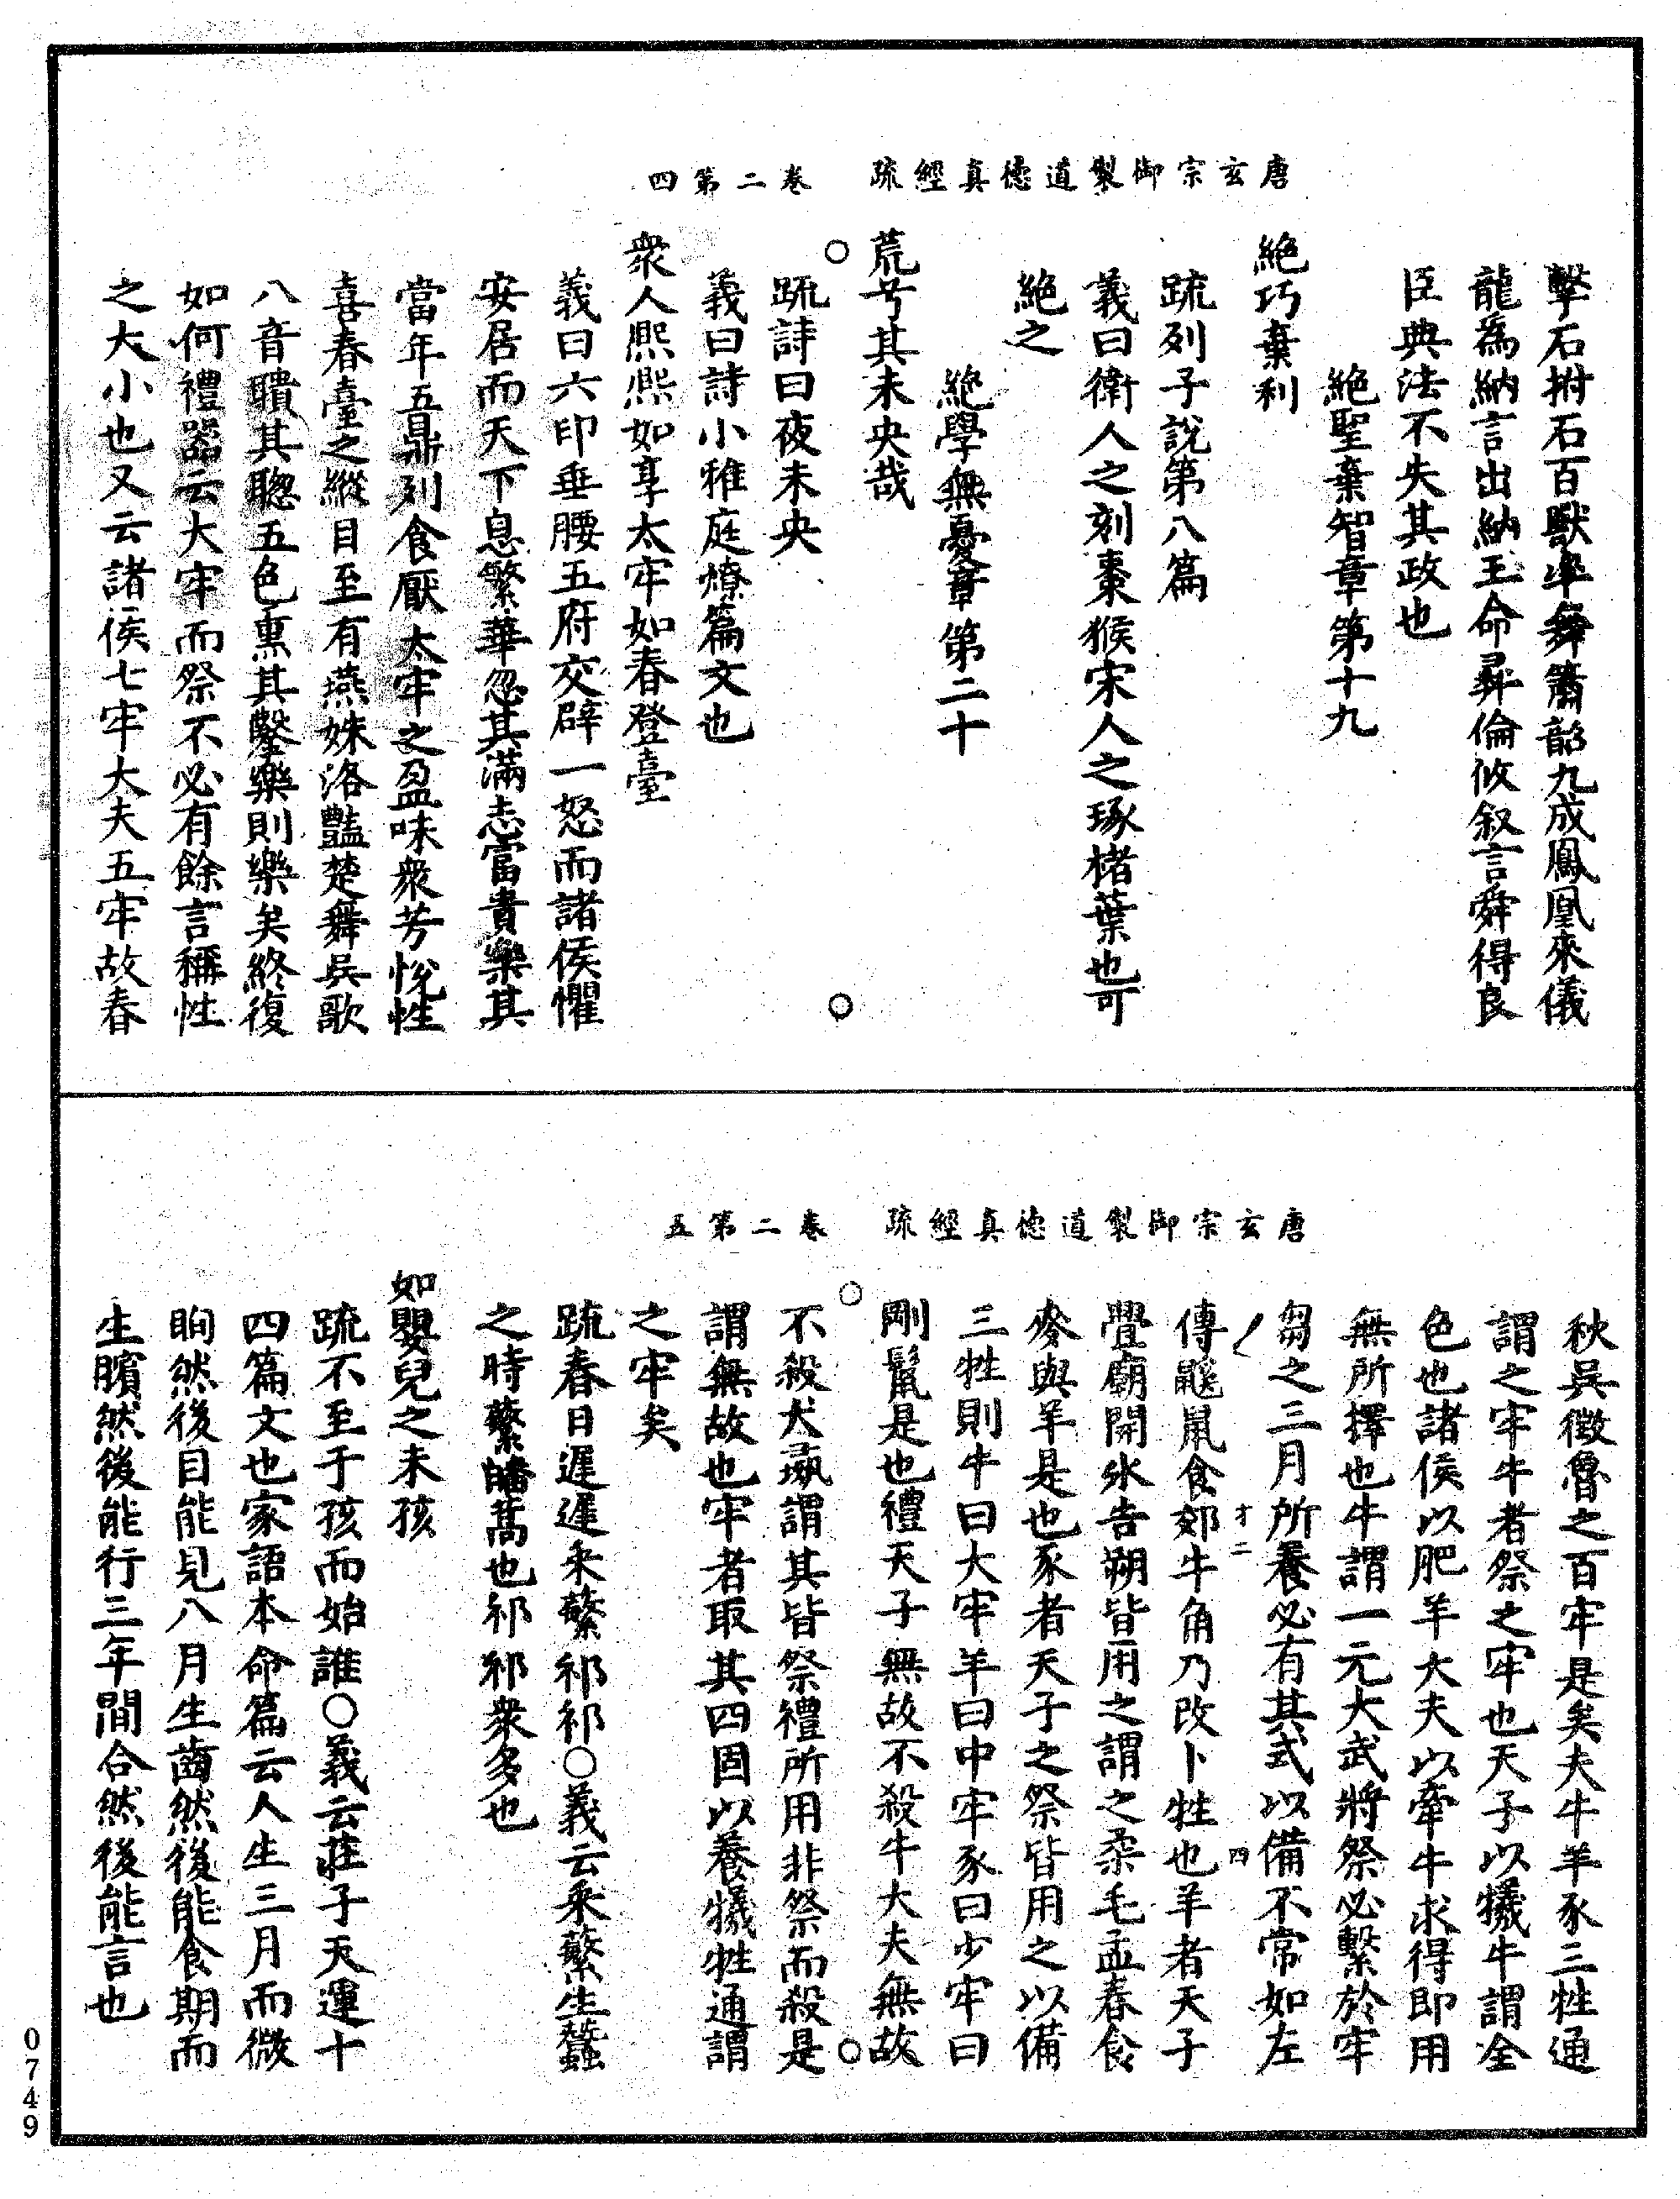 唐玄宗御製道德真經疏　卷二第四
擊石拊石百獸率舞簫韶九成鳳凰來儀
龍為納言出納王命彝倫攸叙言舜得良
臣典法不失其政也
絶聖棄智章第十九
絶巧棄利
疏列子說第八篇
義曰衛人之刻棗猴宋人之琢楮葉也可
絶之
絶學無憂章第二十
荒兮其未央哉
疏詩曰夜未央
義曰詩小雅庭燎篇文也
衆人熙熙如享太牢如春登臺
義曰六印垂腰五府交辟一怒而諸侯懼
安居而天下息繁華忽其滿志富貴樂其
當年五鼎列食厭太牢之盈味衆芳悅性
喜春臺之縱目至有燕姝洛豔楚舞吳歌
八音聵其聰五色熏其鑿樂則樂矣終復
如何禮器云大牢而祭不必有餘言稱性
之大小也又云諸侯七牢大夫五牢故春
唐玄宗御製道德真經疏　卷二第五
秋吳徵魯之百牢是矣夫牛羊豕三牲通
謂之牢牛者祭之牢也天子以犧牛謂全
色也諸侯以肥羊大夫以牽牛求得即用
無所擇也牛謂一元大武將祭必繫於牢
芻之三月所養必有其式以備不常如左
才二　四
傳鼷鼠食郊牛角乃改卜牲也羊者天子
舋廟開氷告朔皆用之謂之柔毛孟春食
麥與羊是也豕者天子之祭皆用之以備
三牲則牛曰大牢羊曰中牢豕曰少牢曰
剛鬣是也禮天子無故不殺牛大夫無故
不殺犬彘謂其皆祭禮所用非祭而殺是
謂無故也牢者取其四固以養犧牲通謂
之牢矣
疏春日遲遲采蘩祁祁○義云采蘩生蠶
之時蘩皤蒿也祁祁衆多也
如嬰兒之未孩
疏不至于孩而始誰○義云莊子天運十
四篇文也家語本命篇云人生三月而微
眴然後目能見八月生齒然後能食期而
生臏然後能行三年𦛗合然後能言也
0749